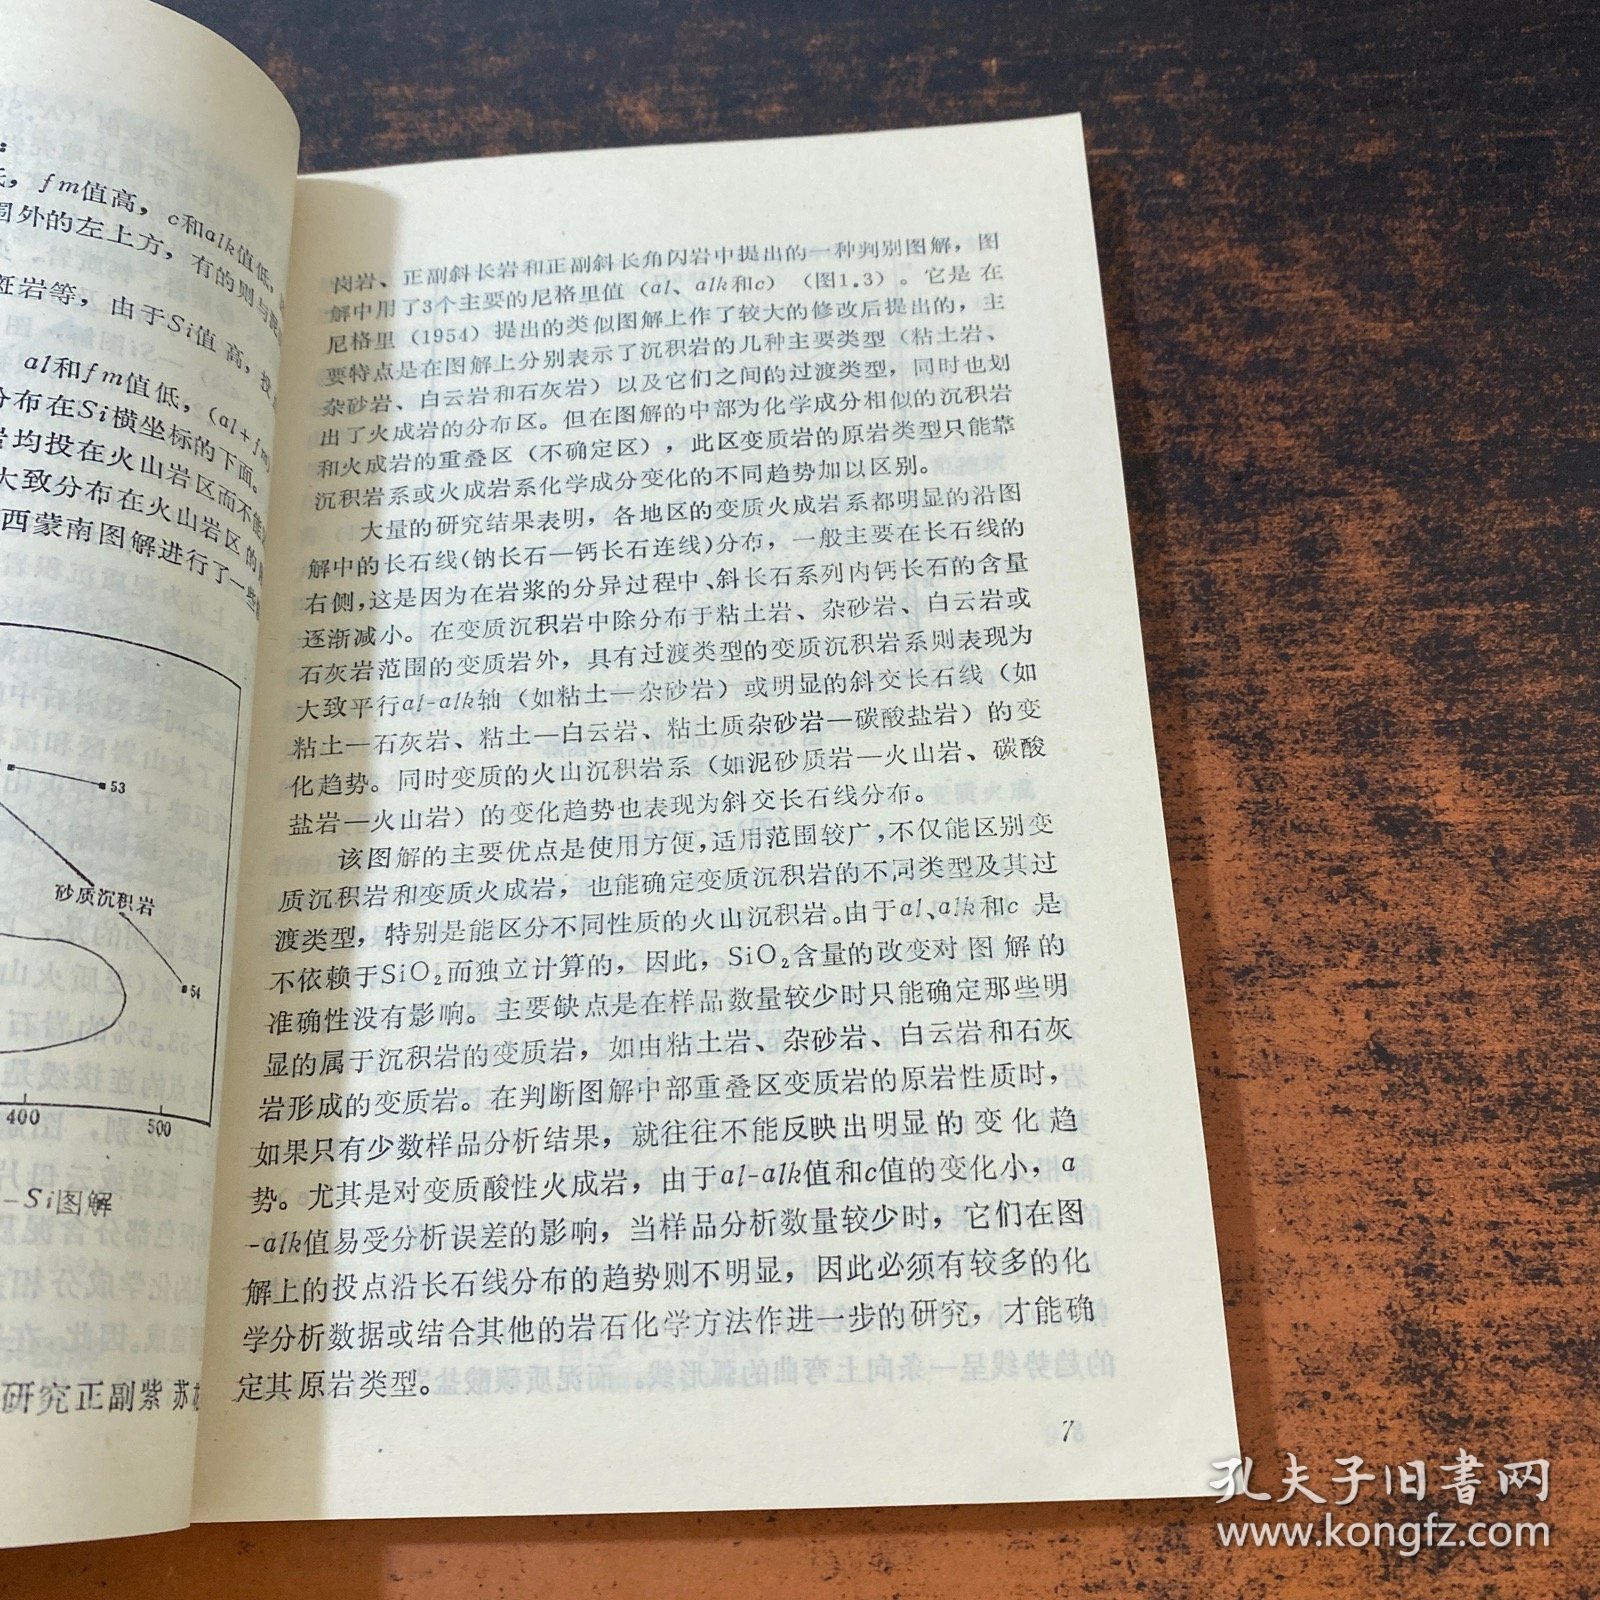 :
fm值高，c和alk值低，
围外的左上方，有的则与
斑岩等，由于Si值高，投
al和fm值低，(al+fm)
分布在Si横坐标的下面。
岩均投在火山岩区而不能
大致分布在火山岩区的
西蒙南图解进行了一些
53
砂质沉积岩
54
400
500
-Si图解
研究正副紫苏
岗岩、正副斜长岩和正副斜长角闪岩中提出的一种判别图解，图
解中用了3个主要的尼格里值（al、alk和c）（图1.3）。它是在
尼格里（1954）提出的类似图解上作了较大的修改后提出的，主
要特点是在图解上分别表示了沉积岩的几种主要类型（粘土岩、
杂砂岩、白云岩和石灰岩）以及它们之间的过渡类型，同时也划
出了火成岩的分布区。但在图解的中部为化学成分相似的沉积岩
和火成岩的重叠区（不确定区），此区变质岩的原岩类型只能靠
沉积岩系或火成岩系化学成分变化的不同趋势加以区别。
大量的研究结果表明，各地区的变质火成岩系都明显的沿图
解中的长石线(钠长石—钙长石连线)分布，一般主要在长石线的
右侧，这是因为在岩浆的分异过程中、斜长石系列内钙长石的含量
逐渐减小。在变质沉积岩中除分布于粘土岩、杂砂岩、白云岩或
石灰岩范围的变质岩外，具有过渡类型的变质沉积岩系则表现为
大致平行al-alk轴（如粘土—杂砂岩）或明显的斜交长石线（如
粘土—石灰岩、粘土—白云岩、粘土质杂砂岩—碳酸盐岩）的变
化趋势。同时变质的火山沉积岩系（如泥砂质岩—火山岩、碳酸
盐岩—火山岩）的变化趋势也表现为斜交长石线分布。
该图解的主要优点是使用方便，适用范围较广，不仅能区别变
质沉积岩和变质火成岩，也能确定变质沉积岩的不同类型及其过
渡类型，特别是能区分不同性质的火山沉积岩。由于al、alk和c 是
不依赖于SiO₂而独立计算的，因此，SiO₂含量的改变对图解的
准确性没有影响。主要缺点是在样品数量较少时只能确定那些明
显的属于沉积岩的变质岩，如由粘土岩、杂砂岩、白云岩和石灰
岩形成的变质岩。在判断图解中部重叠区变质岩的原岩性质时，
如果只有少数样品分析结果，就往往不能反映出明显的变化趋
势。尤其是对变质酸性火成岩，由于al-alk值和c值的变化小，a
-alk值易受分析误差的影响，当样品分析数量较少时，它们在图
解上的投点沿长石线分布的趋势则不明显，因此必须有较多的化
学分析数据或结合其他的岩石化学方法作进一步的研究，才能确
定其原岩类型。
7
孔夫子旧书网
www.kongfz.com